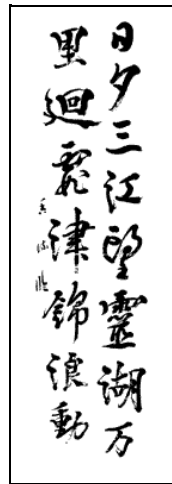 日夕三江望靈潮万
里迴霞津錦浪動